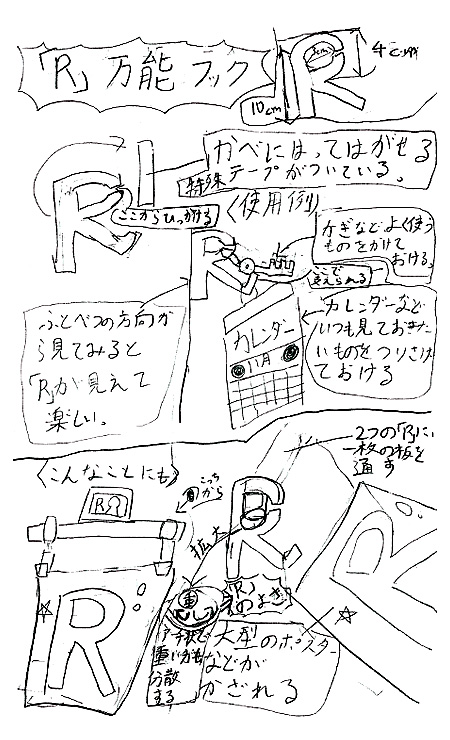 「R」万能フック
3cm
4cm
10cm
かべにはってはがせる
特殊テープがついている。
ここからひっかける
〈使用例〉
かぎなどよく使う
ものをかけて
おける。
ここで
支えられる
カレンダーなど
いつも見ておきた
いものをつりさげ
ておける
カレンダー
11月
ふとべつの方向か
ら見てみると
「R」が見えて
楽しい。
〈こんなことにも〉
こっち
から
2つの「R」に
一枚の板を
通す
拡大
重
アーチ状で
重いかも
分散
する
「R」
大型のポスター
などが
かざれる
R
R
R